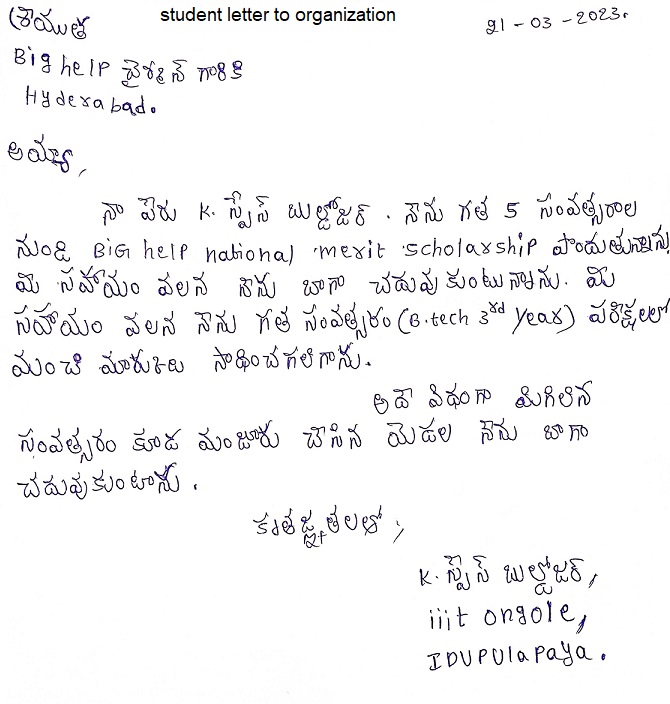 student letter to organization
21-03-2023.
శ్రీయుత
Big help చైర్మన్ గారికి
Hyderabad.
అయ్యా,
నా పేరు K. స్పేస్ బుల్డోజర్. నేను గత 5 సంవత్సరాల
నుండి BiG help national merit scholarship పొందుతున్నాను
మీ సహాయం వలన నేను బాగా చదువుకుంటున్నాను. మీ
సహాయం వలన నేను గత సంవత్సరం (B.tech 3rd Year) పరీక్షలలో
మంచి మార్కులు సాధించగలిగాను.
అదే విధంగా మిగిలిన
సంవత్సరం కూడ మంజూరు చేసిన యెడల నేను బాగా
చదువుకుంటాను.
కృతజ్ఞతలతో,
K. స్పేస్ బుల్డోజర్,
iiit ongole,
IDUPULAPAYA.